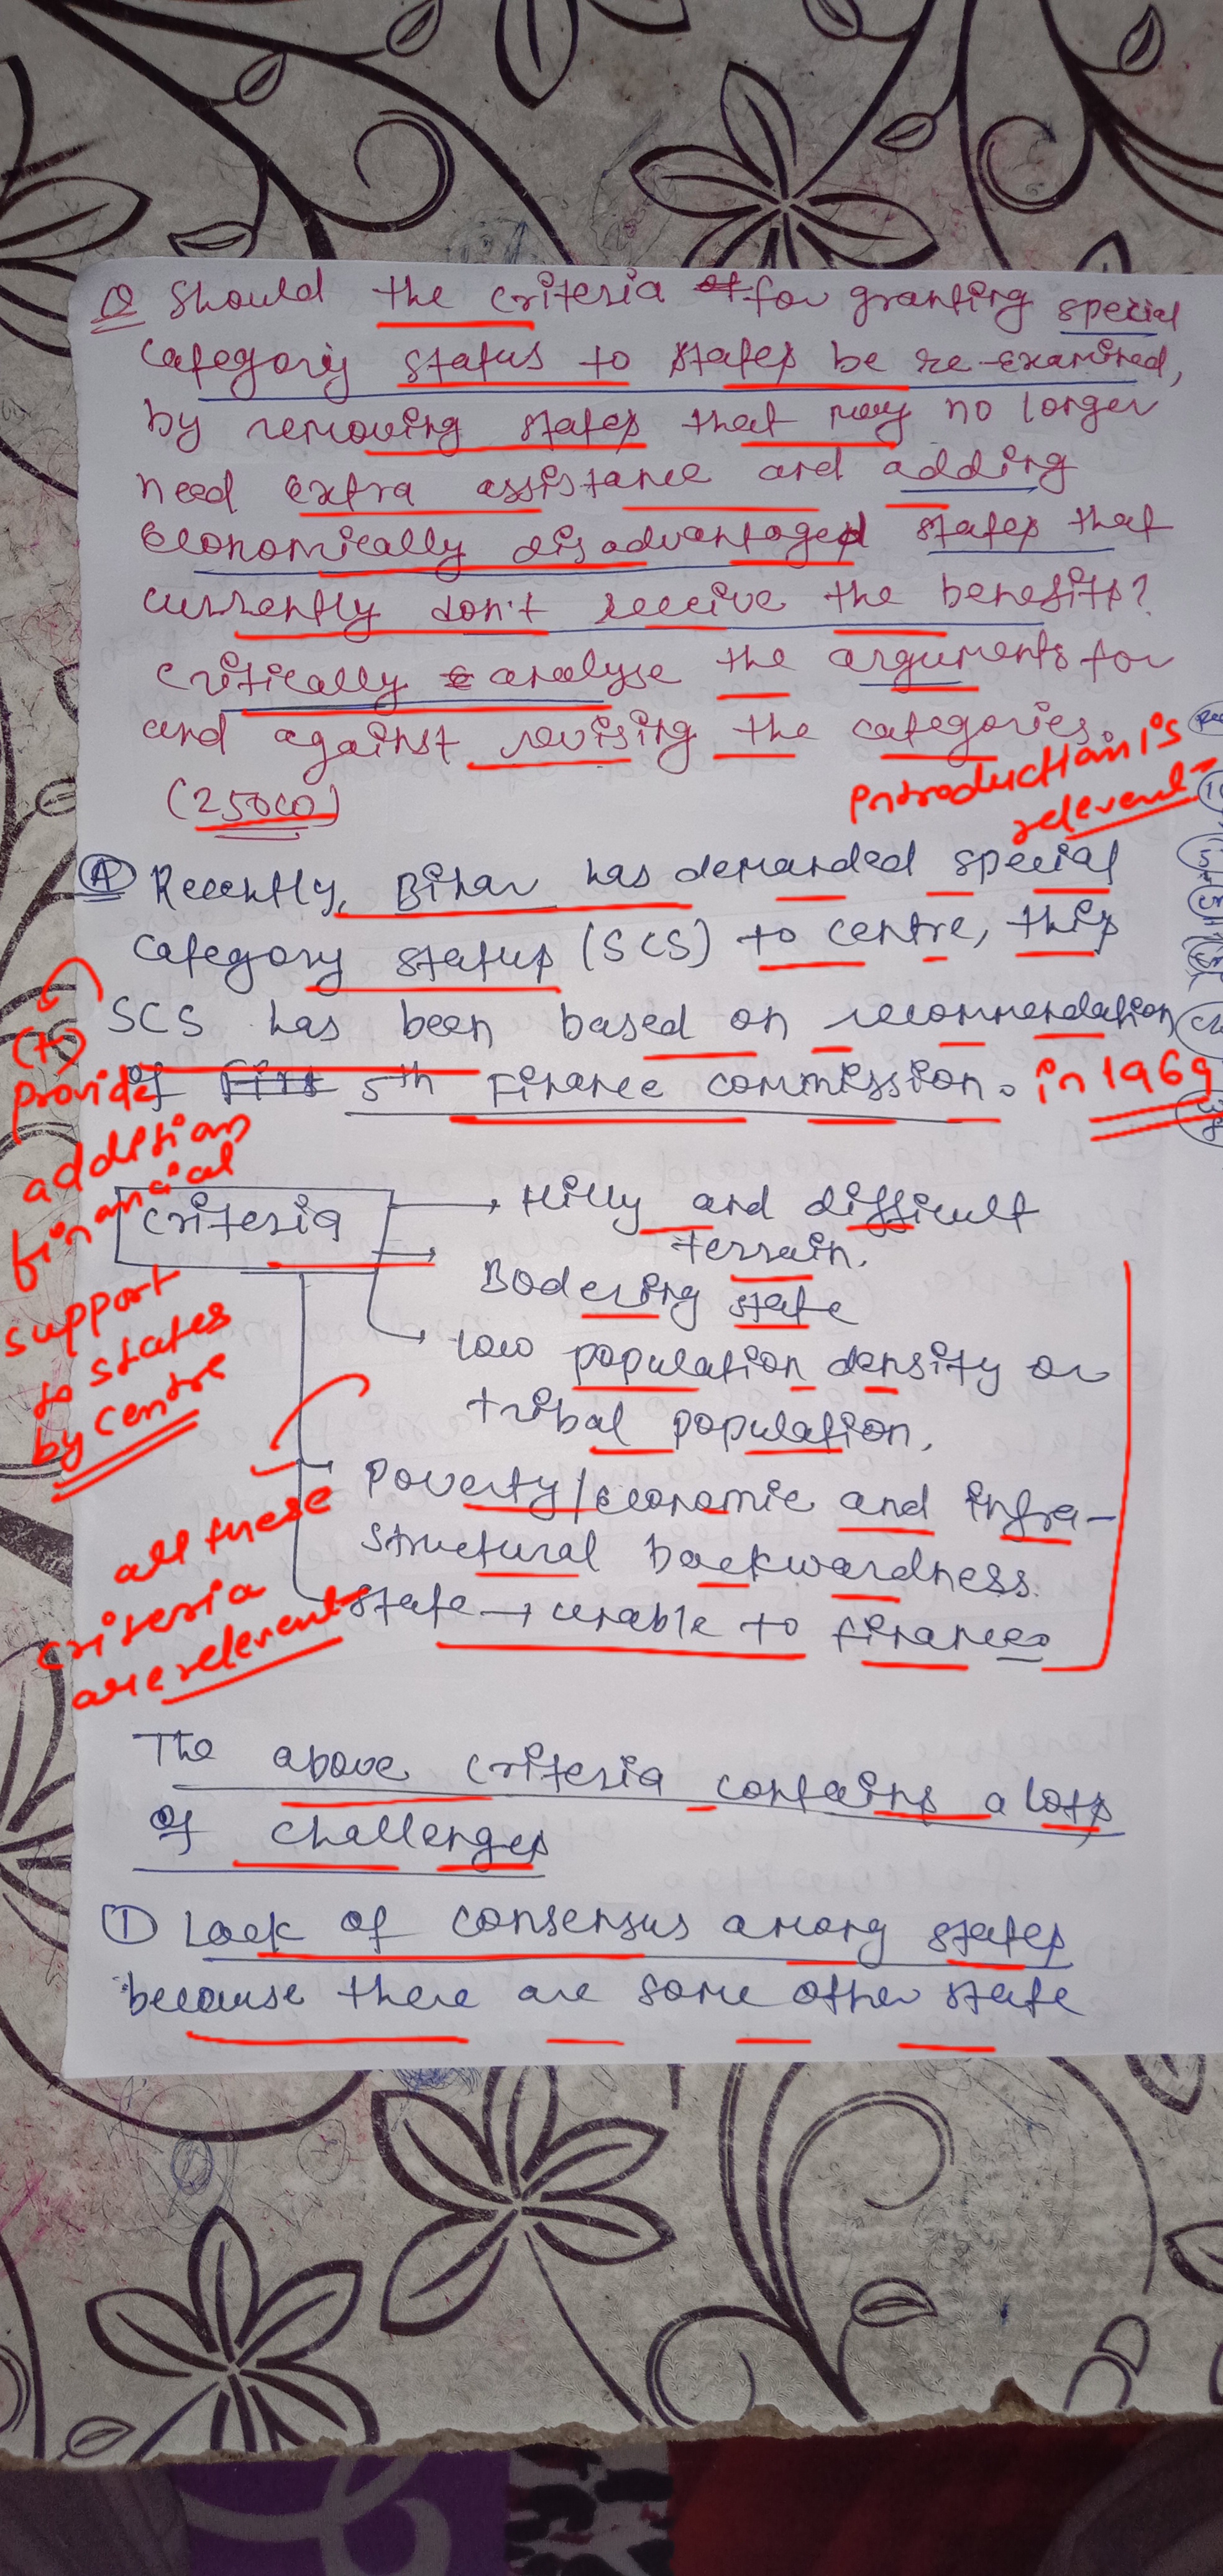 Q Should the criteria of for granting special
category status to states be re-examined,
by removing states that may no longer
need extra assistance and adding
economically disadvantaged states that
currently don't receive the benefits?
critically analyse the arguments for
and against revising the categories.
(250
Introduction is
relevent
(A) Recently, Bihar has demanded special
category status (SCS) to centre, this
SCS has been based on recommendation
of First 5th Finance commission. in 1969
(to)
provide
addition
financial
support
to states
by centre
criteria
Hilly and difficult
terrain.
Bodering state
low population density or
tribal population.
Poverty/economic and infra-
structural backwardness.
state → unable to finances
all these
criteria
are relevent
The above criteria contains a lots
of challenges
(1) Lack of consensus among states
because there are some other state